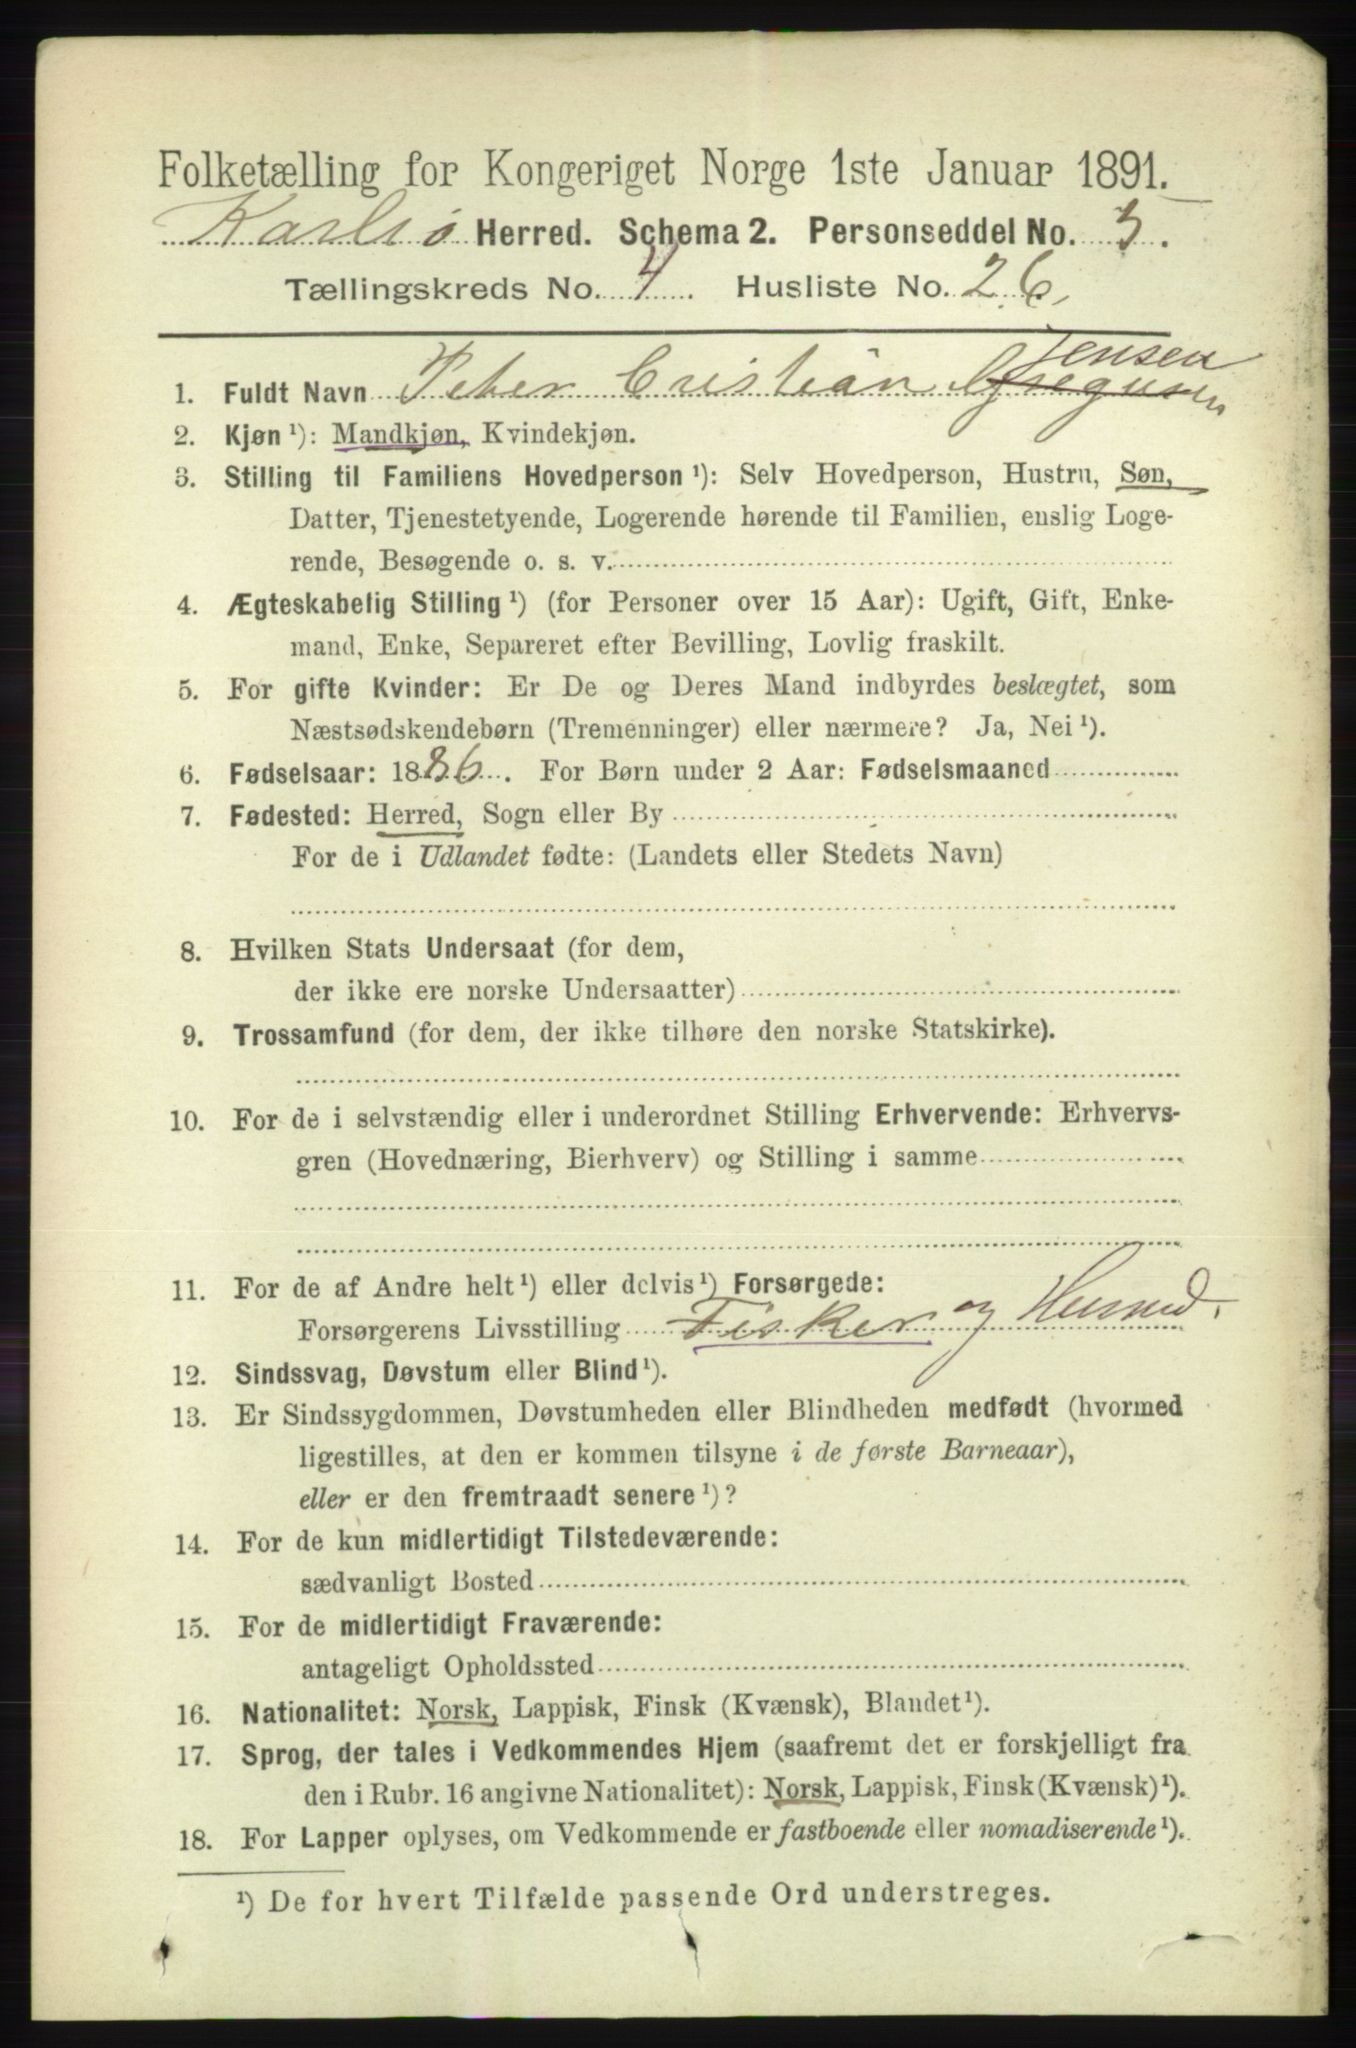 Folketælling for Kongeriget Norge 1ste Januar 1891.
Karlsø Herred. Schema 2. Personseddel No. 5.
Tællingskreds No. 4 Husliste No. 26,
Jensen
1. Fuldt Navn Peter Cristian Gregusen
2. Kjøn ¹): Mandkjøn, Kvindekjøn.
3. Stilling til Familiens Hovedperson ¹): Selv Hovedperson, Hustru, Søn,
Datter, Tjenestetyende, Logerende hørende til Familien, enslig Loge-
rende, Besøgende o. s. v.
4. Ægteskabelig Stilling ¹) (for Personer over 15 Aar): Ugift, Gift, Enke-
mand, Enke, Separeret efter Bevilling, Lovlig fraskilt.
5. For gifte Kvinder: Er De og Deres Mand indbyrdes beslægtet, som
Næstsødskendebørn (Tremenninger) eller nærmere? Ja, Nei ¹).
6. Fødselsaar: 1886. For Børn under 2 Aar: Fødselsmaaned
7. Fødested: Herred, Sogn eller By
For de i Udlandet fødte: (Landets eller Stedets Navn)
8. Hvilken Stats Undersaat (for dem,
der ikke ere norske Undersaatter)
9. Trossamfund (for dem, der ikke tilhøre den norske Statskirke).
10. For de i selvstændig eller i underordnet Stilling Erhvervende: Erhvervs-
gren (Hovednæring, Bierhverv) og Stilling i samme
11. For de af Andre helt ¹) eller delvis ¹) Forsørgede:
Forsørgerens Livsstilling Fisker og Husmd.
12. Sindssvag, Døvstum eller Blind ¹).
13. Er Sindssygdommen, Døvstumheden eller Blindheden medfødt (hvormed
ligestilles, at den er kommen tilsyne i de første Barneaar),
eller er den fremtraadt senere ¹)?
14. For de kun midlertidigt Tilstedeværende:
sædvanligt Bosted
15. For de midlertidigt Fraværende:
antageligt Opholdssted
16. Nationalitet: Norsk, Lappisk, Finsk (Kvænsk), Blandet ¹).
17. Sprog, der tales i Vedkommendes Hjem (saafremt det er forskjelligt fra
den i Rubr. 16 angivne Nationalitet): Norsk, Lappisk, Finsk (Kvænsk) ¹).
18. For Lapper oplyses, om Vedkommende er fastboende eller nomadiserende ¹).
¹) De for hvert Tilfælde passende Ord understreges.